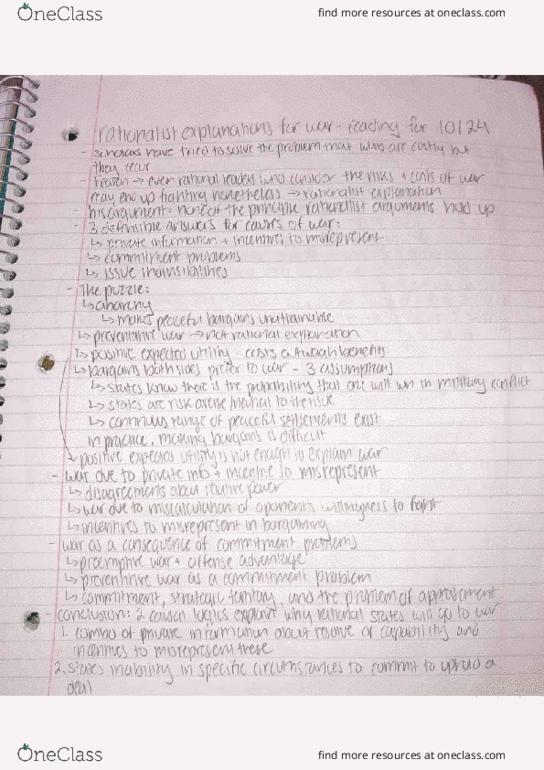 OneClass
find more resources at oneclass.com
rationalist explanations for war - reading for 10/24
- scholars have tried to solve the problem that wars are costly but
they recur
- Fearon → even rational leaders who consider the risks + costs of war
may end up fighting nonetheless → rationalist explanation
- his argument: none of the principle rationalist arguments hold up
- 3 defensible answers for causes of war:
↳ private information + incentives to misrepresent
↳ commitment problems
↳ issue indivisibilities
- The puzzle:
↳ anarchy
↳ makes peaceful bargains unattainable
↳ preventative war → not rational explanation
↳ positive expected utility - costs outweigh benefits
↳ bargains both sides prefer to war - 3 assumptions
↳ states know there is the probability that one will win in military conflict
↳ states are risk averse/neutral to the issue
↳ continuous range of peaceful settlements exist
in practice, making bargains is difficult
↳ positive expected utility is not enough to explain war
- war due to private info + incentive to misrepresent
↳ disagreements about relative power
↳ war due to miscalculation of oponents willingness to fight
↳ incentives to misrepresent in bargaining
- war as a consequence of commitment problems
↳ preemptive war + offense advantage
↳ preventive war as a commitment problem
↳ commitment, strategic territory, and the problem of appeasement
- conclusion: 2 causal logics explain why rational states will go to war
1. combo of private information about resolve or capability and
incentives to misrepresent these
2. states inability in specific circumstances to commit to uphold a
deal
OneClass
find more resources at oneclass.com